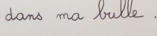 dans ma bulle.